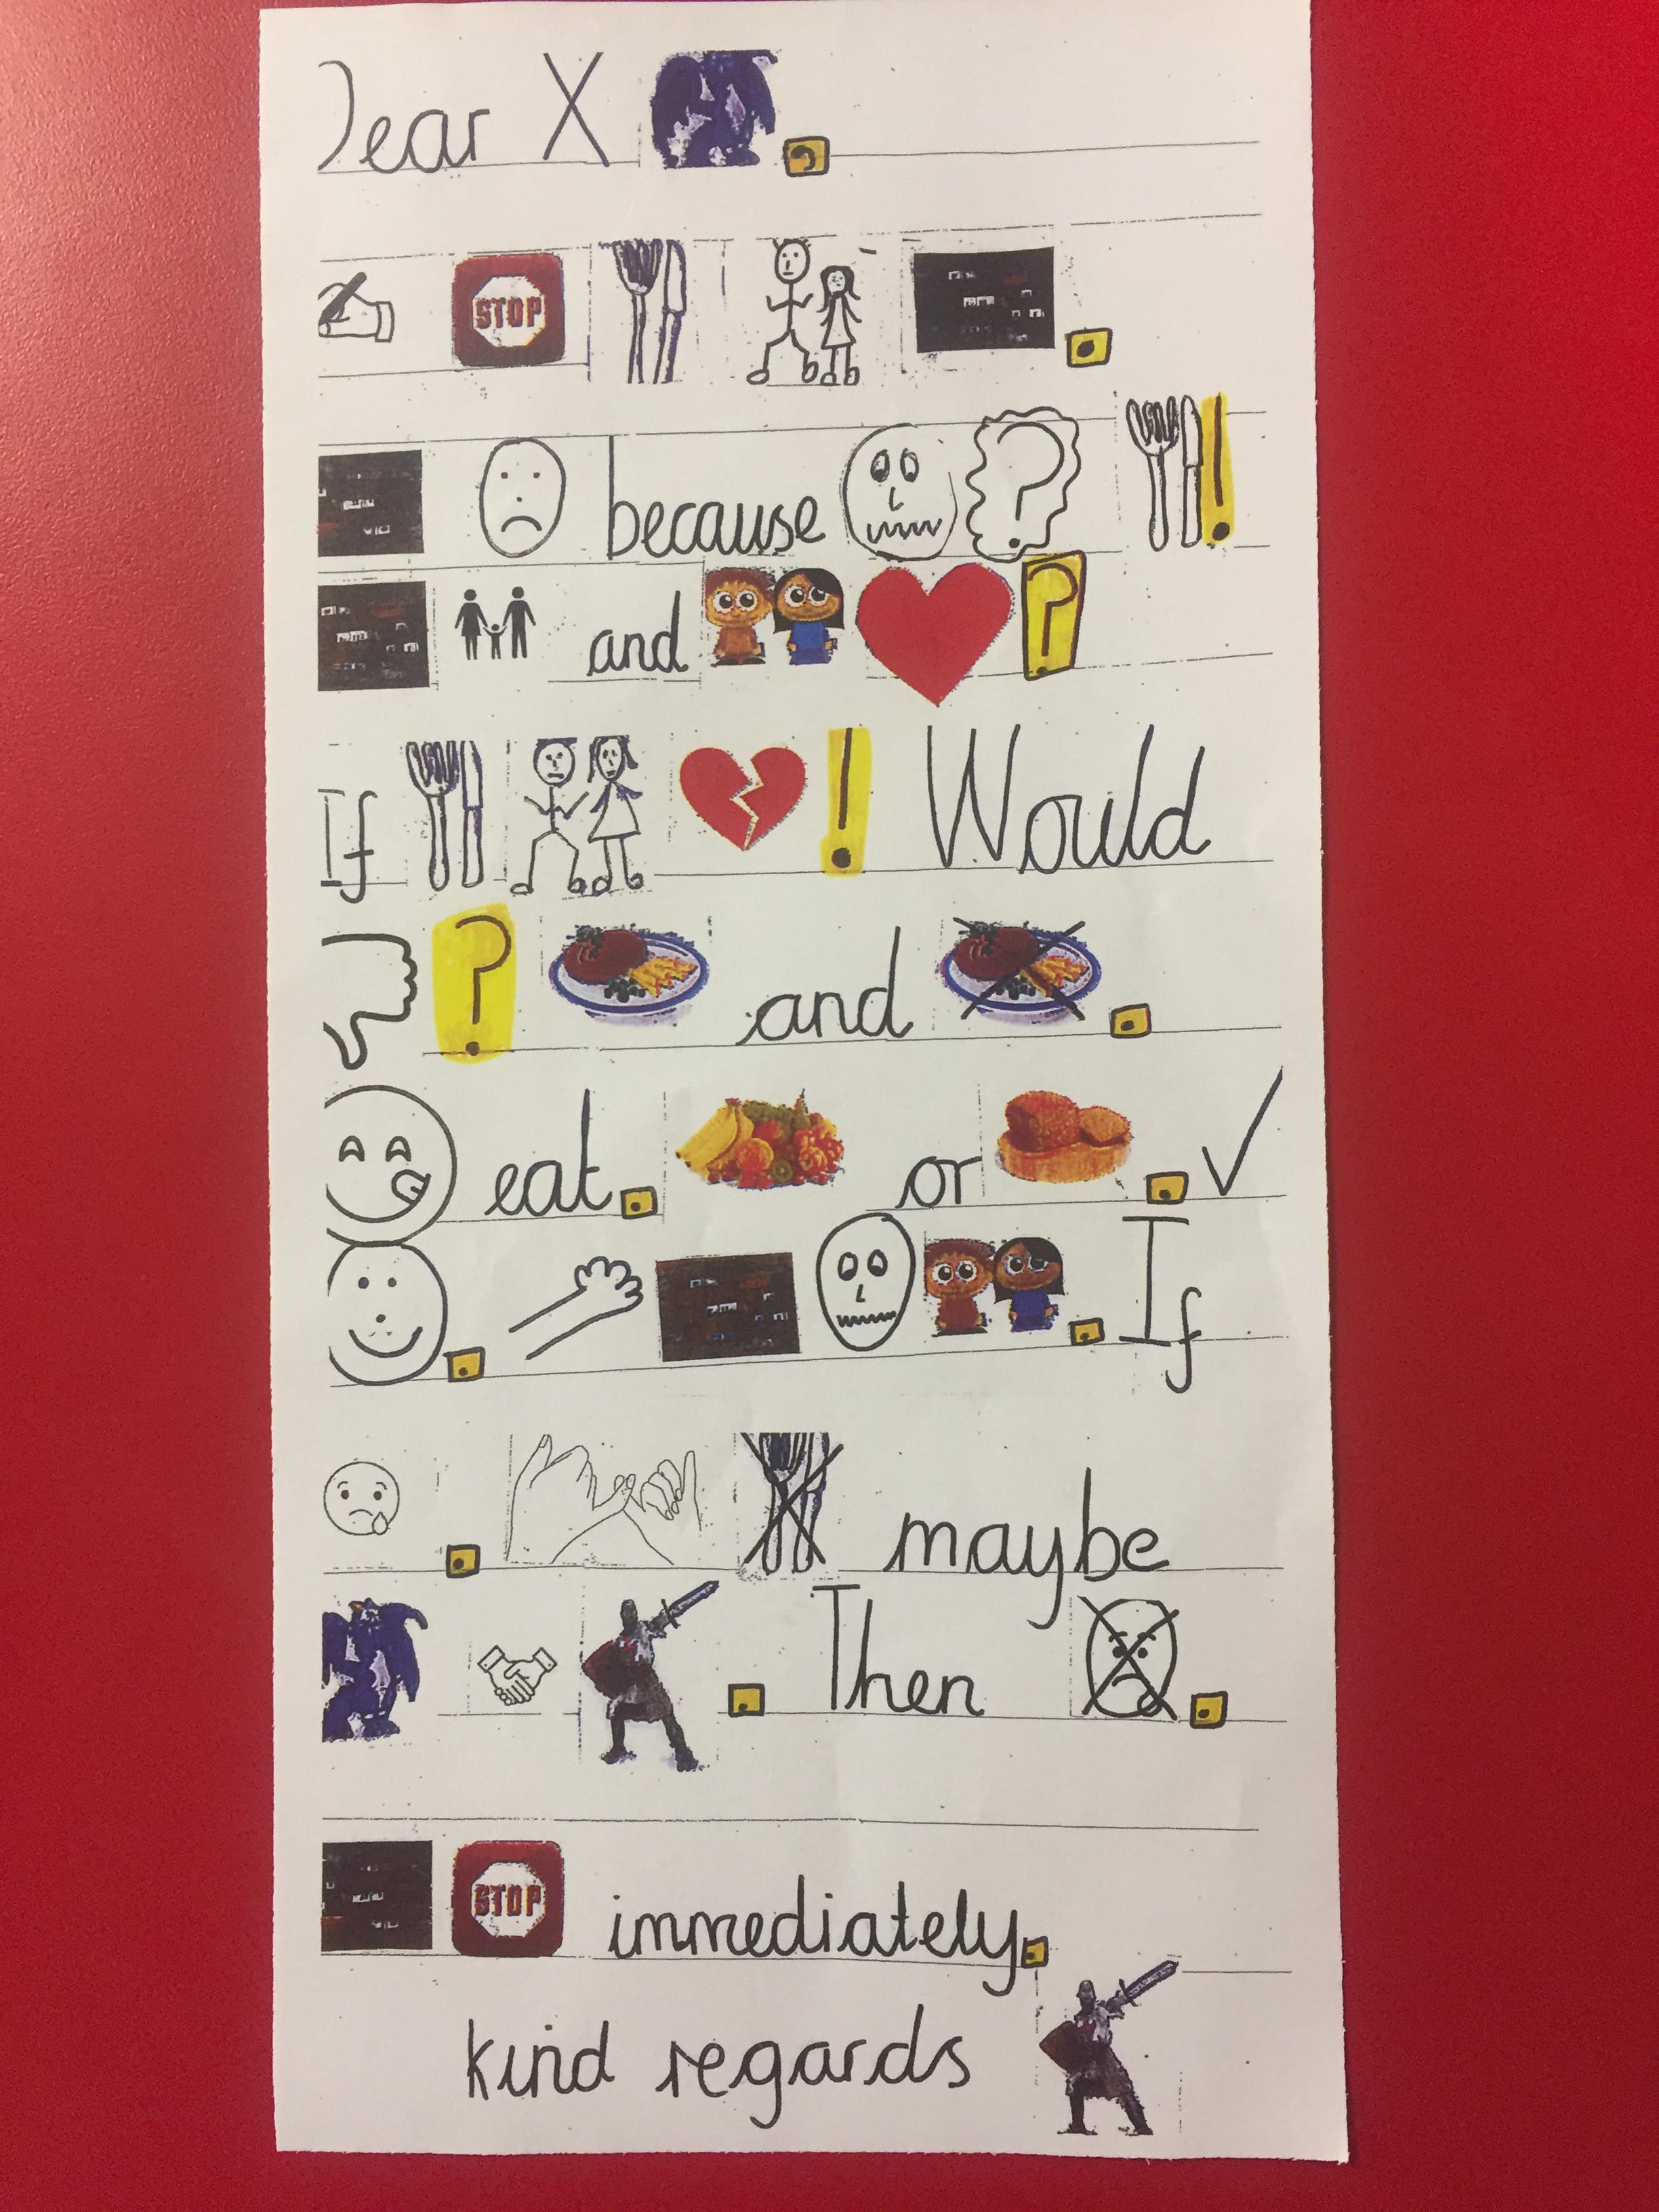 Dear X .
STOP .
because ? !
and ?
If ! Would
? and .
eat. or . ✓
. . If
. maybe
. Then .
STOP immediately.
kind regards